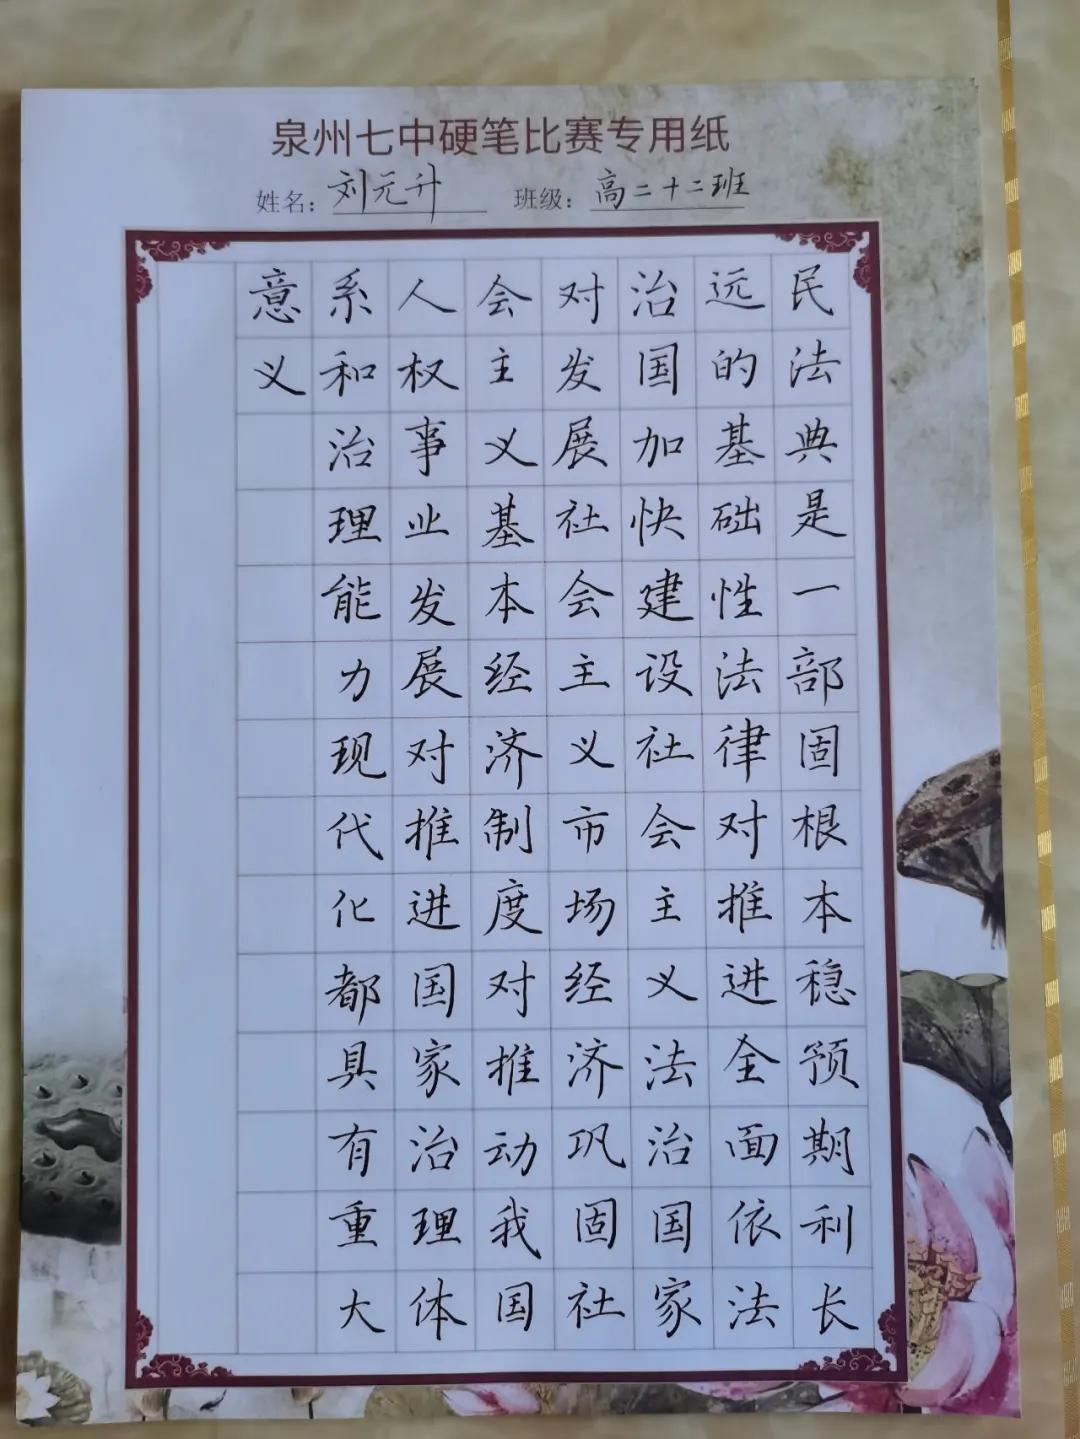 泉州七中硬笔比赛专用纸
姓名：刘元升 班级：高二十二班
民法典是一部固根本稳预期利长
远的基础性法律对推进全面依法
治国加快建设社会主义法治国家
对发展社会主义市场经济巩固社
会主义基本经济制度对推动我国
人权事业发展对推进国家治理体
系和治理能力现代化都具有重大
意义